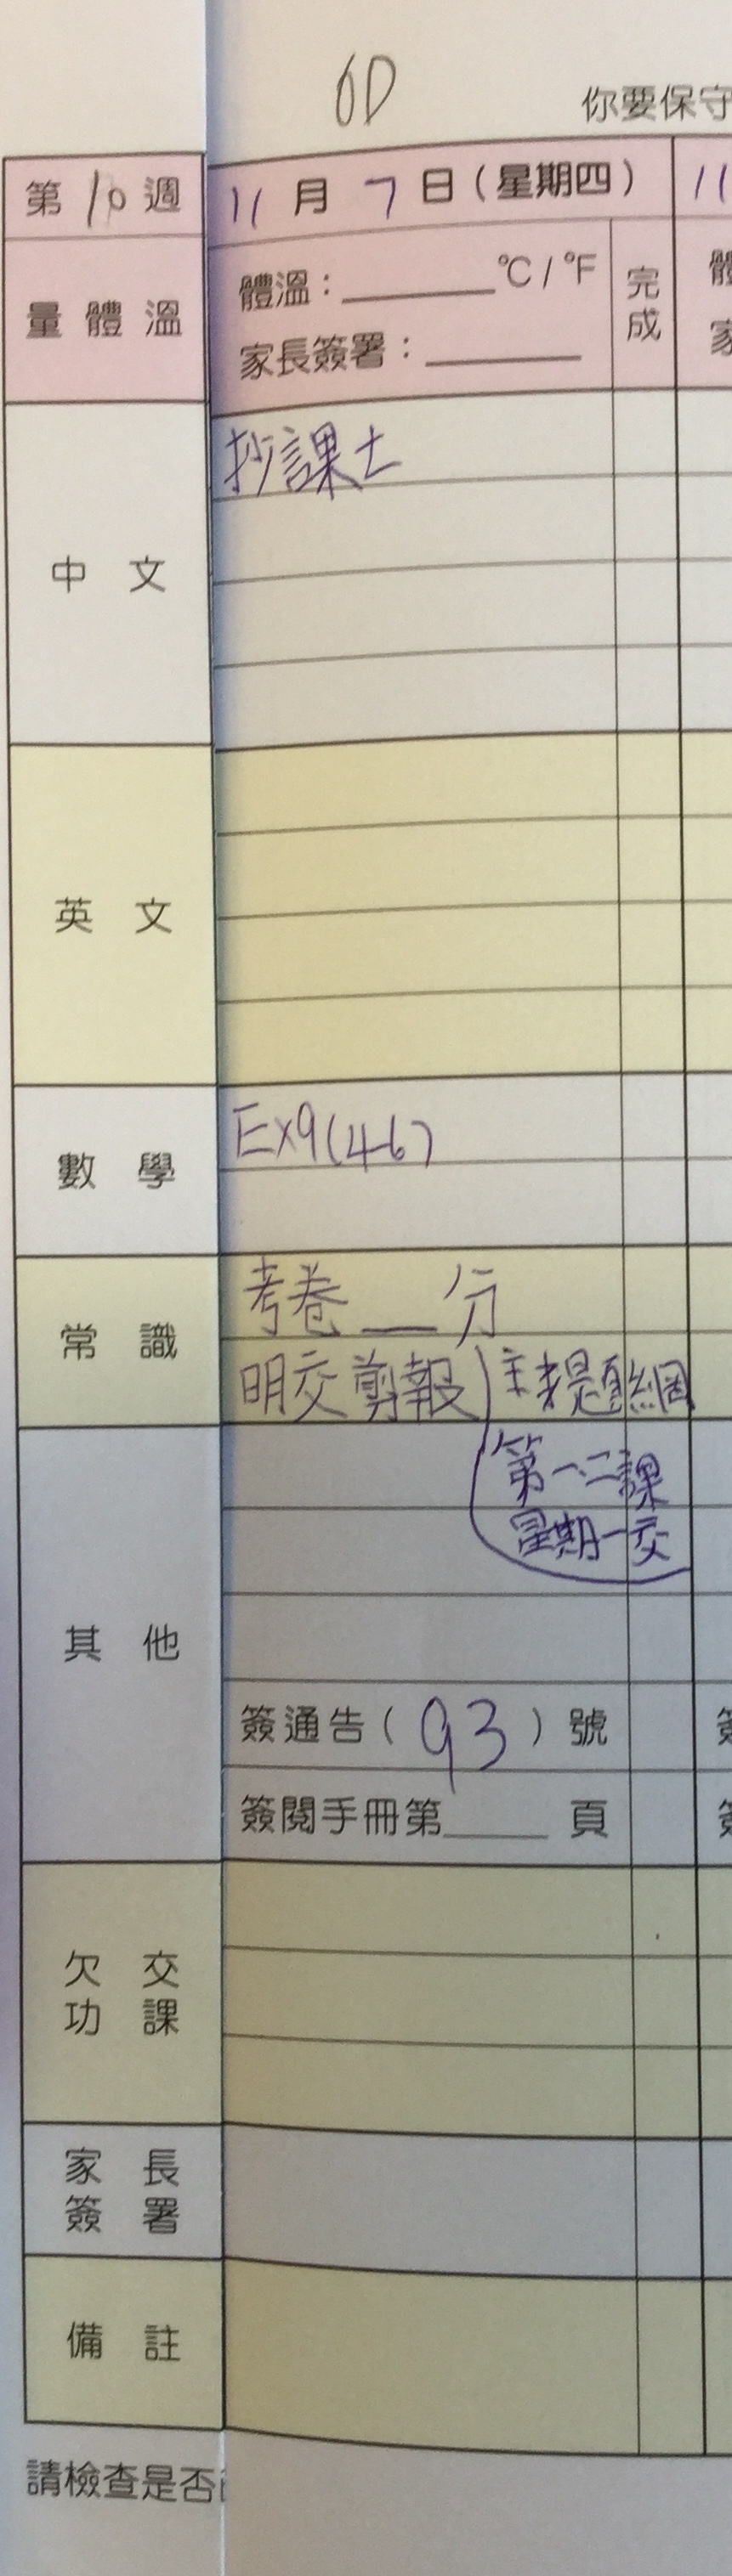 6D
你要保守
第10週
11月7日(星期四)
11
量體溫
體溫：______°C/°F
完成
家長簽署：______
中文
抄課士
英文
數學
Ex9(4-6)
常識
考卷__分
明交剪報
主題網
第一、二課
星期一交
其他
簽通告(93)號
簽閱手冊第____頁
欠交功課
家長簽署
備註
請檢查是否